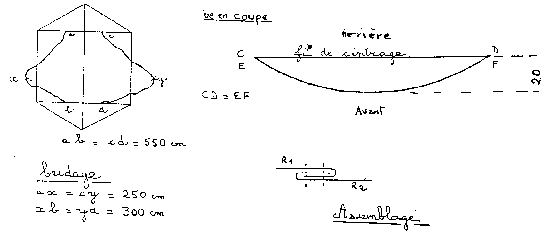 vue en coupe
Arrière
C
D
fil de cintrage
E
F
20
CD = EF
Avant
a
c
x
y
b
d
ab = cd = 550 cm
bridage
ax = cy = 250 cm
xb = yd = 300 cm
R1
R2
Assemblage